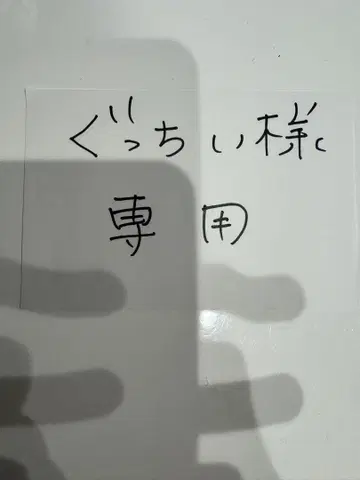 ぐっちぃ様
専用